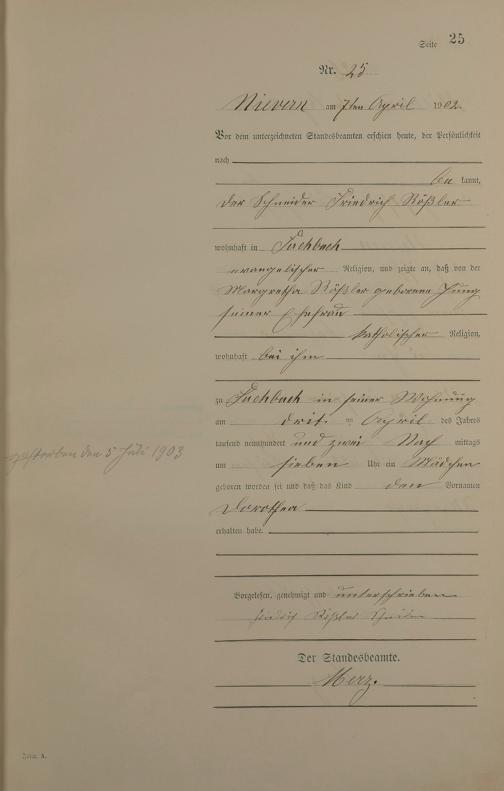 Seite 25
Nr. 25
Nievern am 7ten April 1902.
Vor dem unterzeichneten Standesbeamten erschien heute, der Persönlichkeit
nach
be kannt,
der Schneider Friedrich Rößler
wohnhaft in Fachbach
evangelischer Religion, und zeigte an, daß von der
Margretha Rößler geborene Jung
seiner Ehefrau
katholischer Religion,
wohnhaft bei ihm
zu Fachbach in seiner Wohnung
am dritten April des Jahres
tausend neunhundert und zwei Nach mittags
um sieben Uhr ein Mädchen
geboren worden sei und daß das Kind den Vornamen
Dorothea
erhalten habe.
gestorben den 5 Juli 1903
Vorgelesen, genehmigt und unterschrieben
Friedrich Rößler
Der Standesbeamte.
Merz.
Form. A.